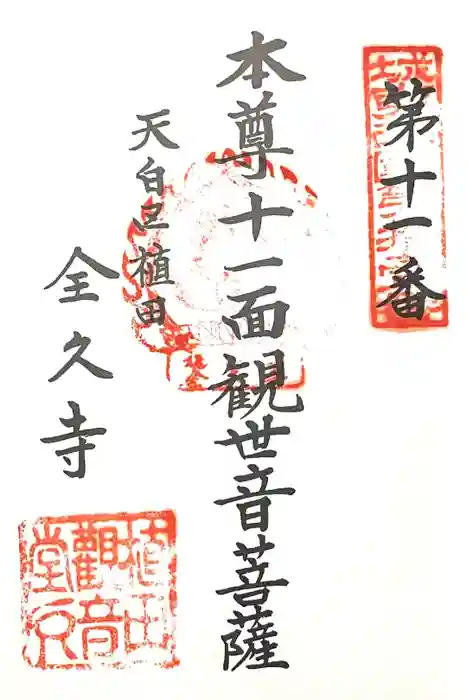 第十一番
本尊十一面観世音菩薩
天白区植田
全久寺
植田
觀音
堂印